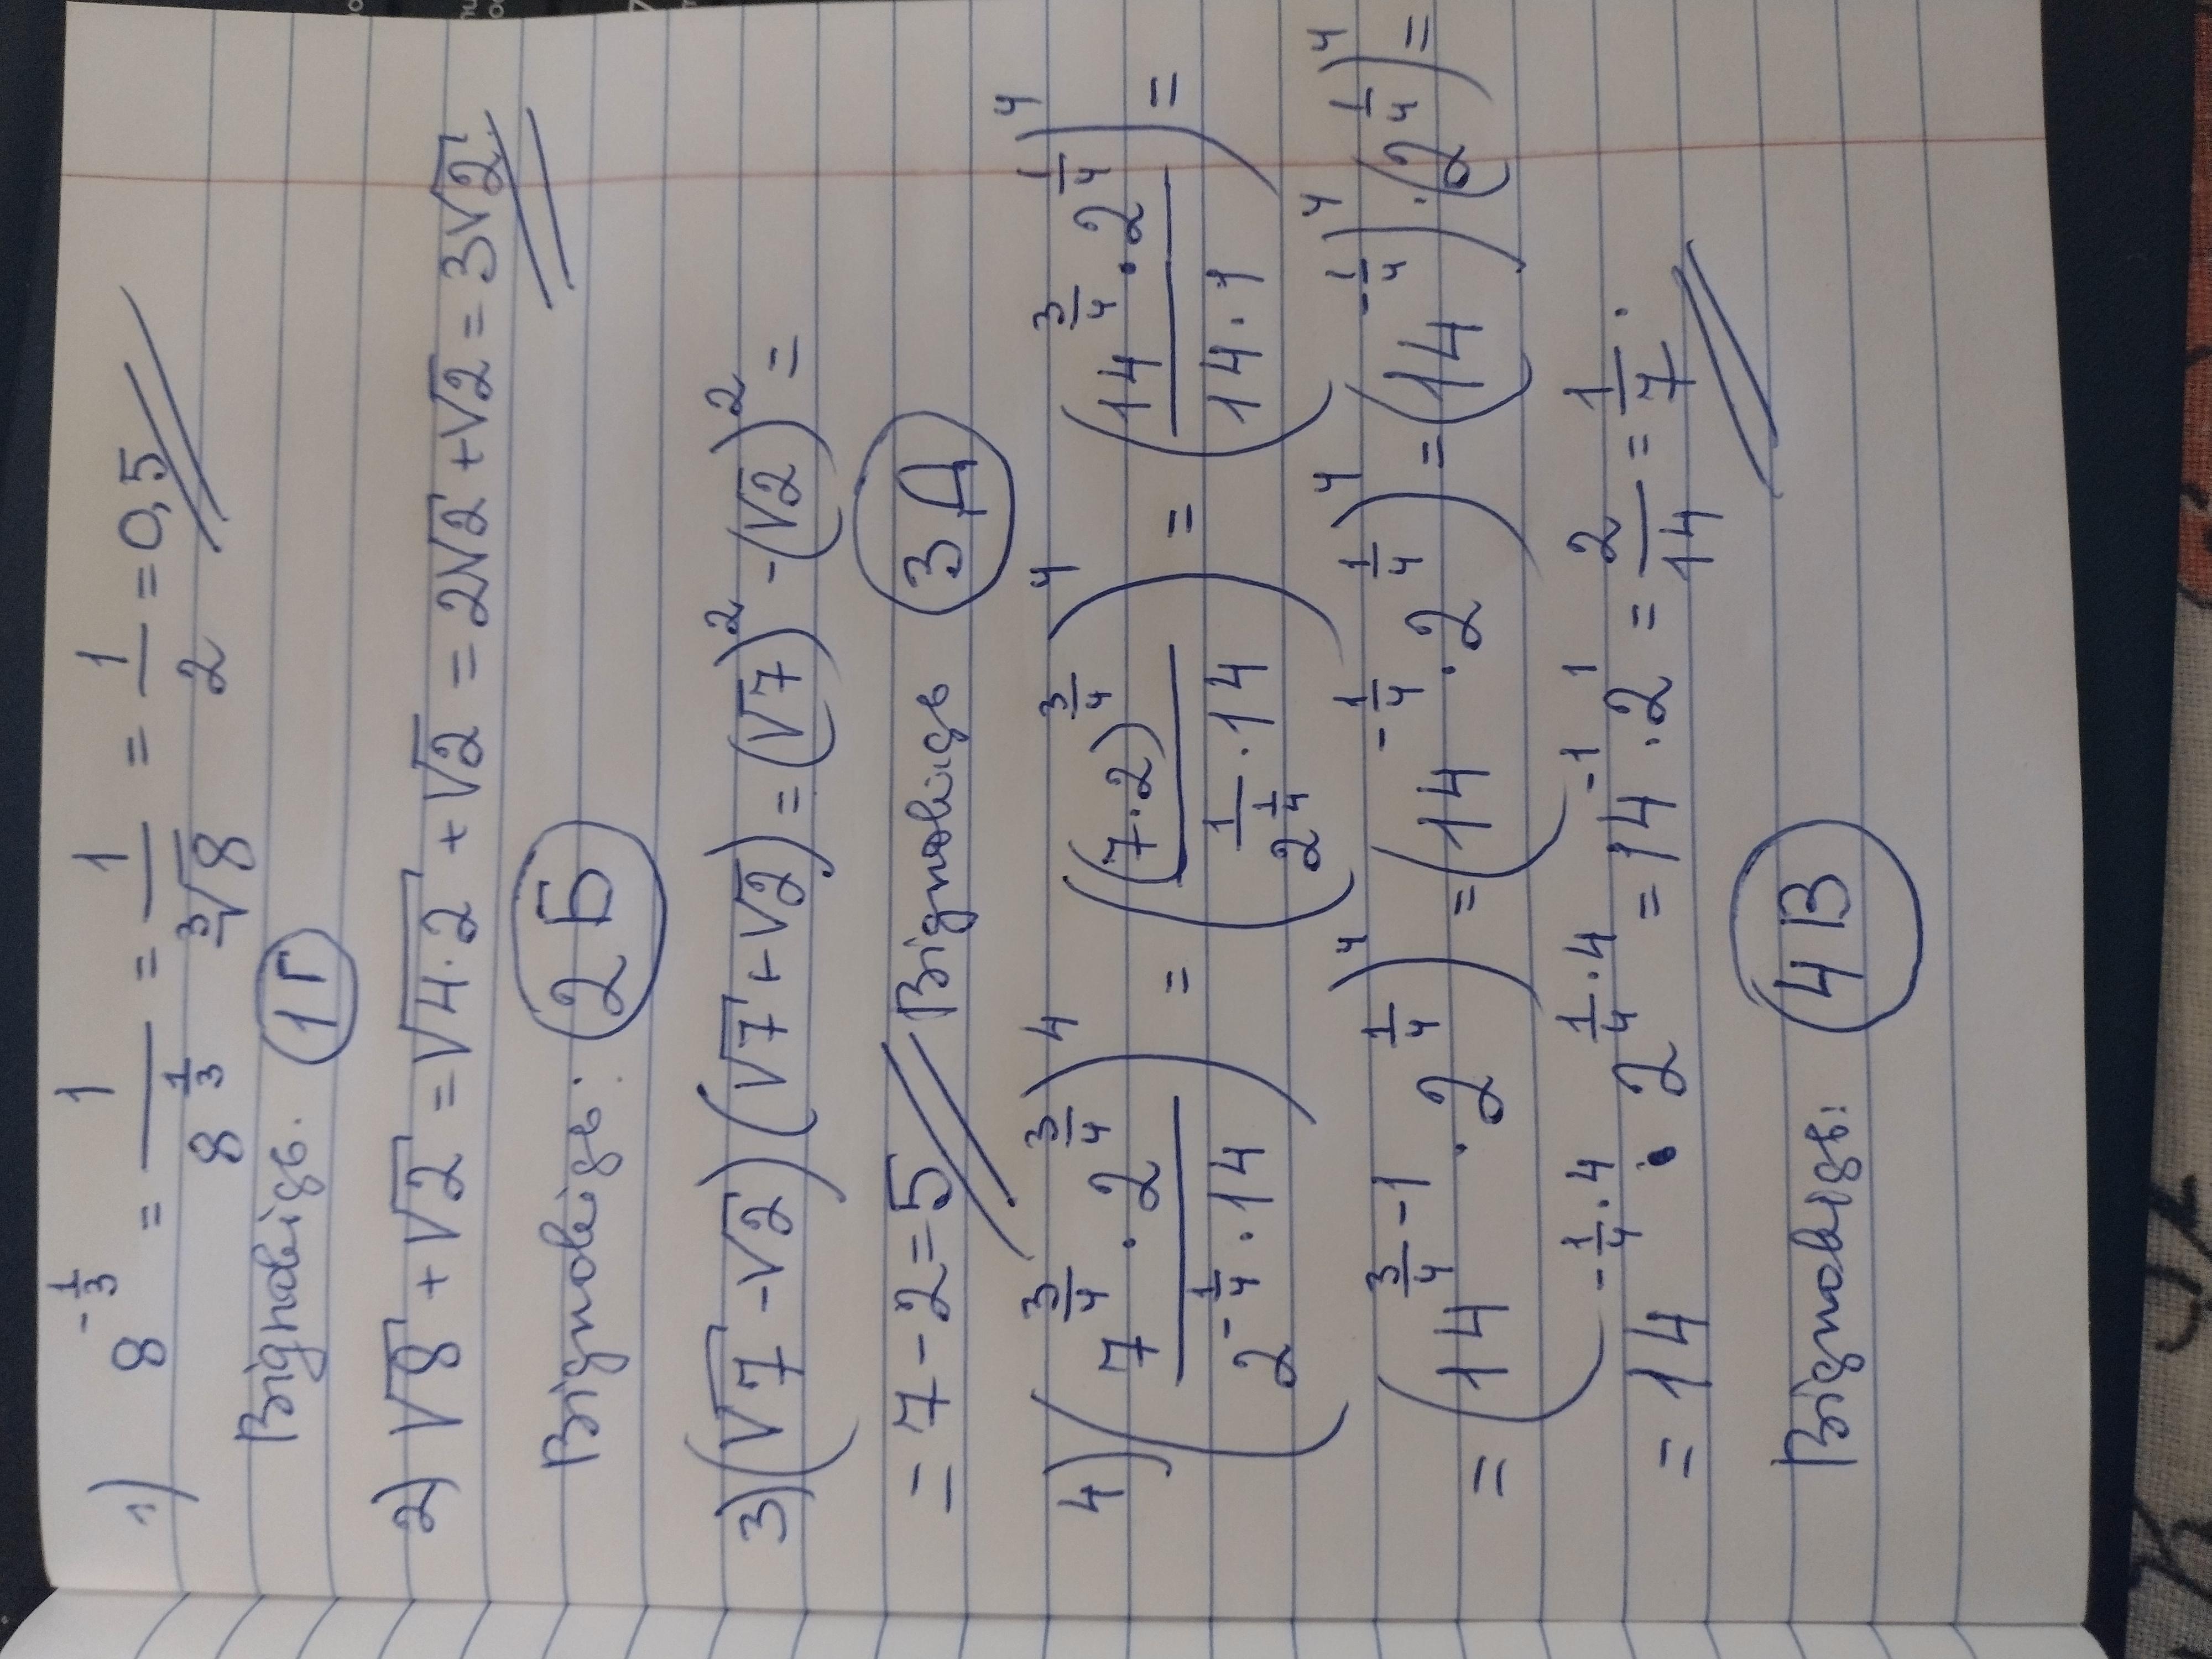 1) 8^{-\frac{1}{3}} = \frac{1}{8^{\frac{1}{3}}} = \frac{1}{\sqrt[3]{8}} = \frac{1}{2} = 0,5
Відповідь. 1Г
2) √8 + √2 = √4·2 + √2 = 2√2 + √2 = 3√2
Відповідь: 2Б
3) (√7 - √2)(√7 + √2) = (√7)² - (√2)² =
= 7 - 2 = 5 Відповідь 3Д
4) (\frac{7^{\frac{3}{4}} · 2^{\frac{3}{4}}}{2^{-\frac{1}{4}} · 14})^4 = (\frac{(7·2)^{\frac{3}{4}}}{\frac{1}{2^{\frac{1}{4}}} · 14})^4 = (\frac{14^{\frac{3}{4}} · 2^{\frac{1}{4}}}{14 · 1})^4 =
= (14^{\frac{3}{4}-1} · 2^{\frac{1}{4}})^4 = (14^{-\frac{1}{4}} · 2^{\frac{1}{4}})^4 = (14^{-\frac{1}{4}})^4 · (2^{\frac{1}{4}})^4 =
= 14^{-\frac{1}{4}·4} · 2^{\frac{1}{4}·4} = 14^{-1} · 2^1 = \frac{2}{14} = \frac{1}{7}.
Відповідь: 4В